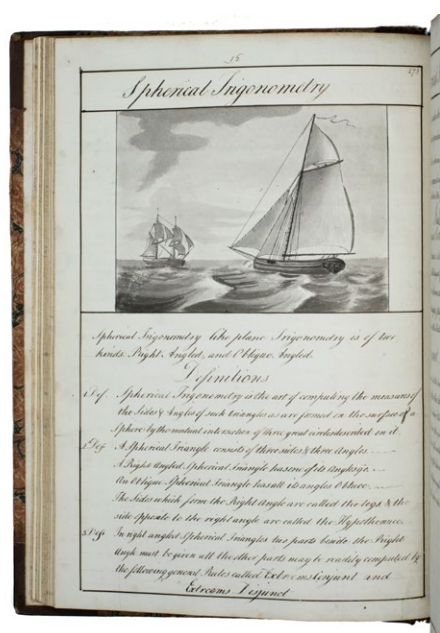 15
271
Spherical Trigonometry
Spherical Trigonometry like plane Trigonometry is of two
kinds. Right Angled, and Oblique Angled.
Definitions
1 Def. Spherical Trigonometry is the art of computing the measures of
the Sides & Angles of such triangles as are formed on the surface of a
Sphere by the mutual intersection of three great circles described on it.
2 Def. A Spherical Triangle consists of three sides & three Angles
A Right Angled Spherical Triangle has one of its Angles
An Oblique Spherical Triangle has all its angles Oblique
The Sides which form the Right Angle are called the legs & the
side opposite to the right angle are called the Hypothenuse
3 Def. In right angled Spherical Triangles two parts beside the Right
Angle must be given all the other parts may be readily computed by
the following general Rules called Extreems Conjunct and
Extreams Disjunct